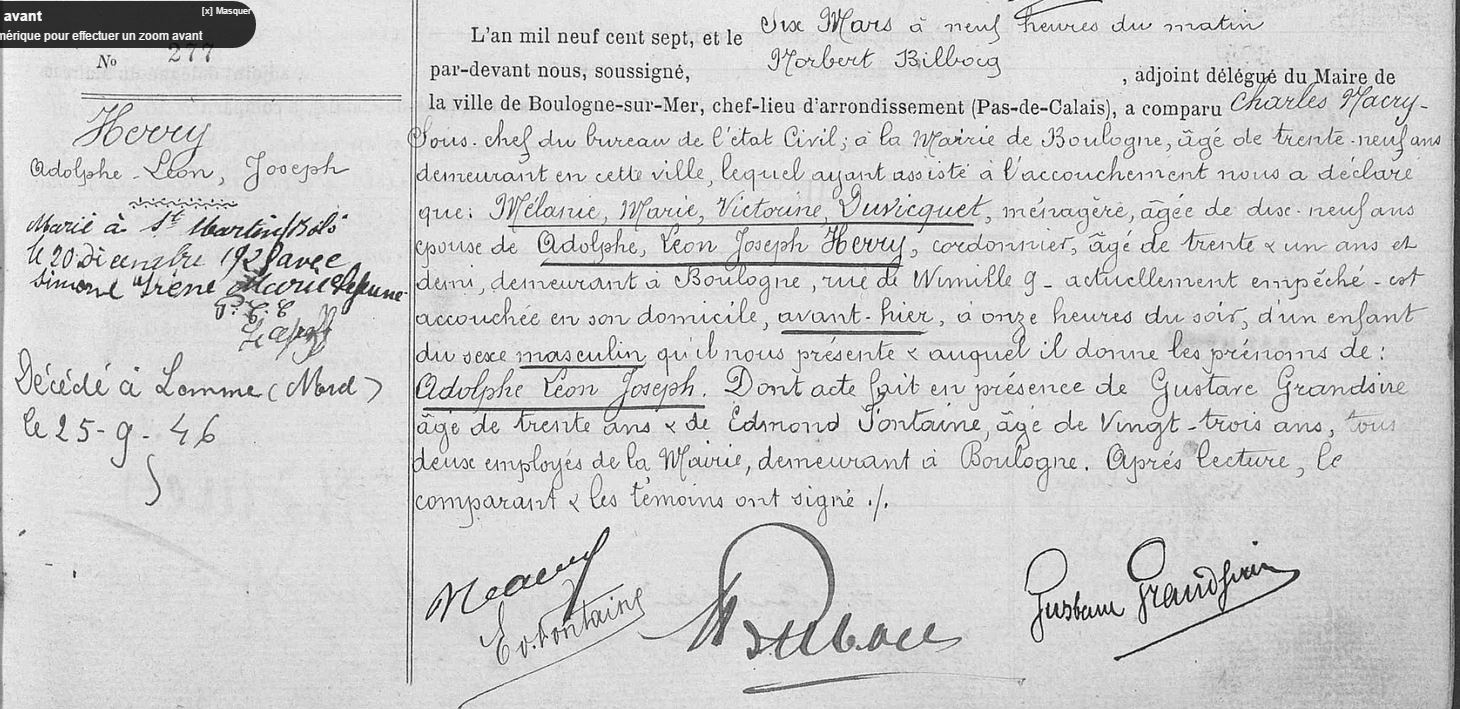 avant
[x] Masquer
mérique pour effectuer un zoom avant
N° 277
Herry
Adolphe-Léon, Joseph
Marié à St Martin/Blô
le 20 Décembre 1928 avec
Simone Irène Marie Lejeune
Décédé à Lomme (Nord)
le 25-9-46
L'an mil neuf cent sept, et le Six Mars à neuf heures du matin
par-devant nous, soussigné, Norbert Bilbocq, adjoint délégué du Maire de
la ville de Boulogne-sur-Mer, chef-lieu d'arrondissement (Pas-de-Calais), a comparu Charles Macry-
Sous-chef du bureau de l'état Civil, à la Mairie de Boulogne, âgé de trente-neuf ans
demeurant en cette ville, lequel ayant assisté à l'accouchement nous a déclaré
que: Mélanie, Marie, Victorine, Duvicquet, ménagère, âgée de dix-neuf ans
épouse de Adolphe, Léon Joseph Herry, cordonnier, âgé de trente & un ans et
demi, demeurant à Boulogne, rue de Wimille 9 - actuellement empêché - est
accouchée en son domicile, avant-hier, à onze heures du soir, d'un enfant
du sexe masculin qu'il nous présente & auquel il donne les prénoms de:
Adolphe Léon Joseph. Dont acte fait en présence de Gustave Grandsire
âgé de trente ans & de Edmond Fontaine, âgé de Vingt-trois ans, tous
deux employés de la Mairie, demeurant à Boulogne. Après lecture, le
comparant & les témoins ont signé ./.
Macry
Ed. Fontaine
Gustave Grandsire